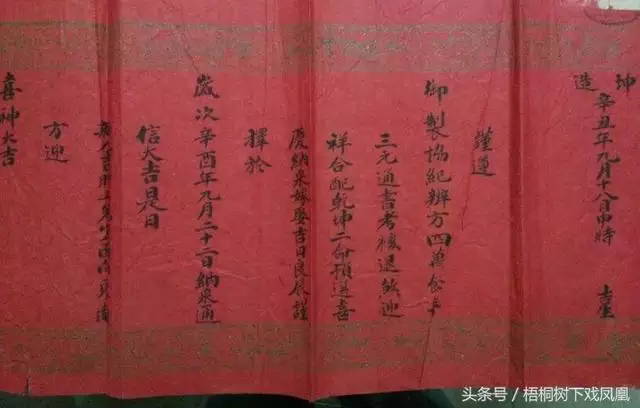 坤造
辛丑年九月十八日申時
謹遵
御製協紀辨方四萬
三元通書考核退煞迎
祥合配乾坤二命預送喜
慶納采嫁娶吉日良辰謹
擇於
歲次辛酉年九月二十二日納采通
信大吉是日
方迎
喜神大吉
头条号 / 梧桐树下戏凤凰